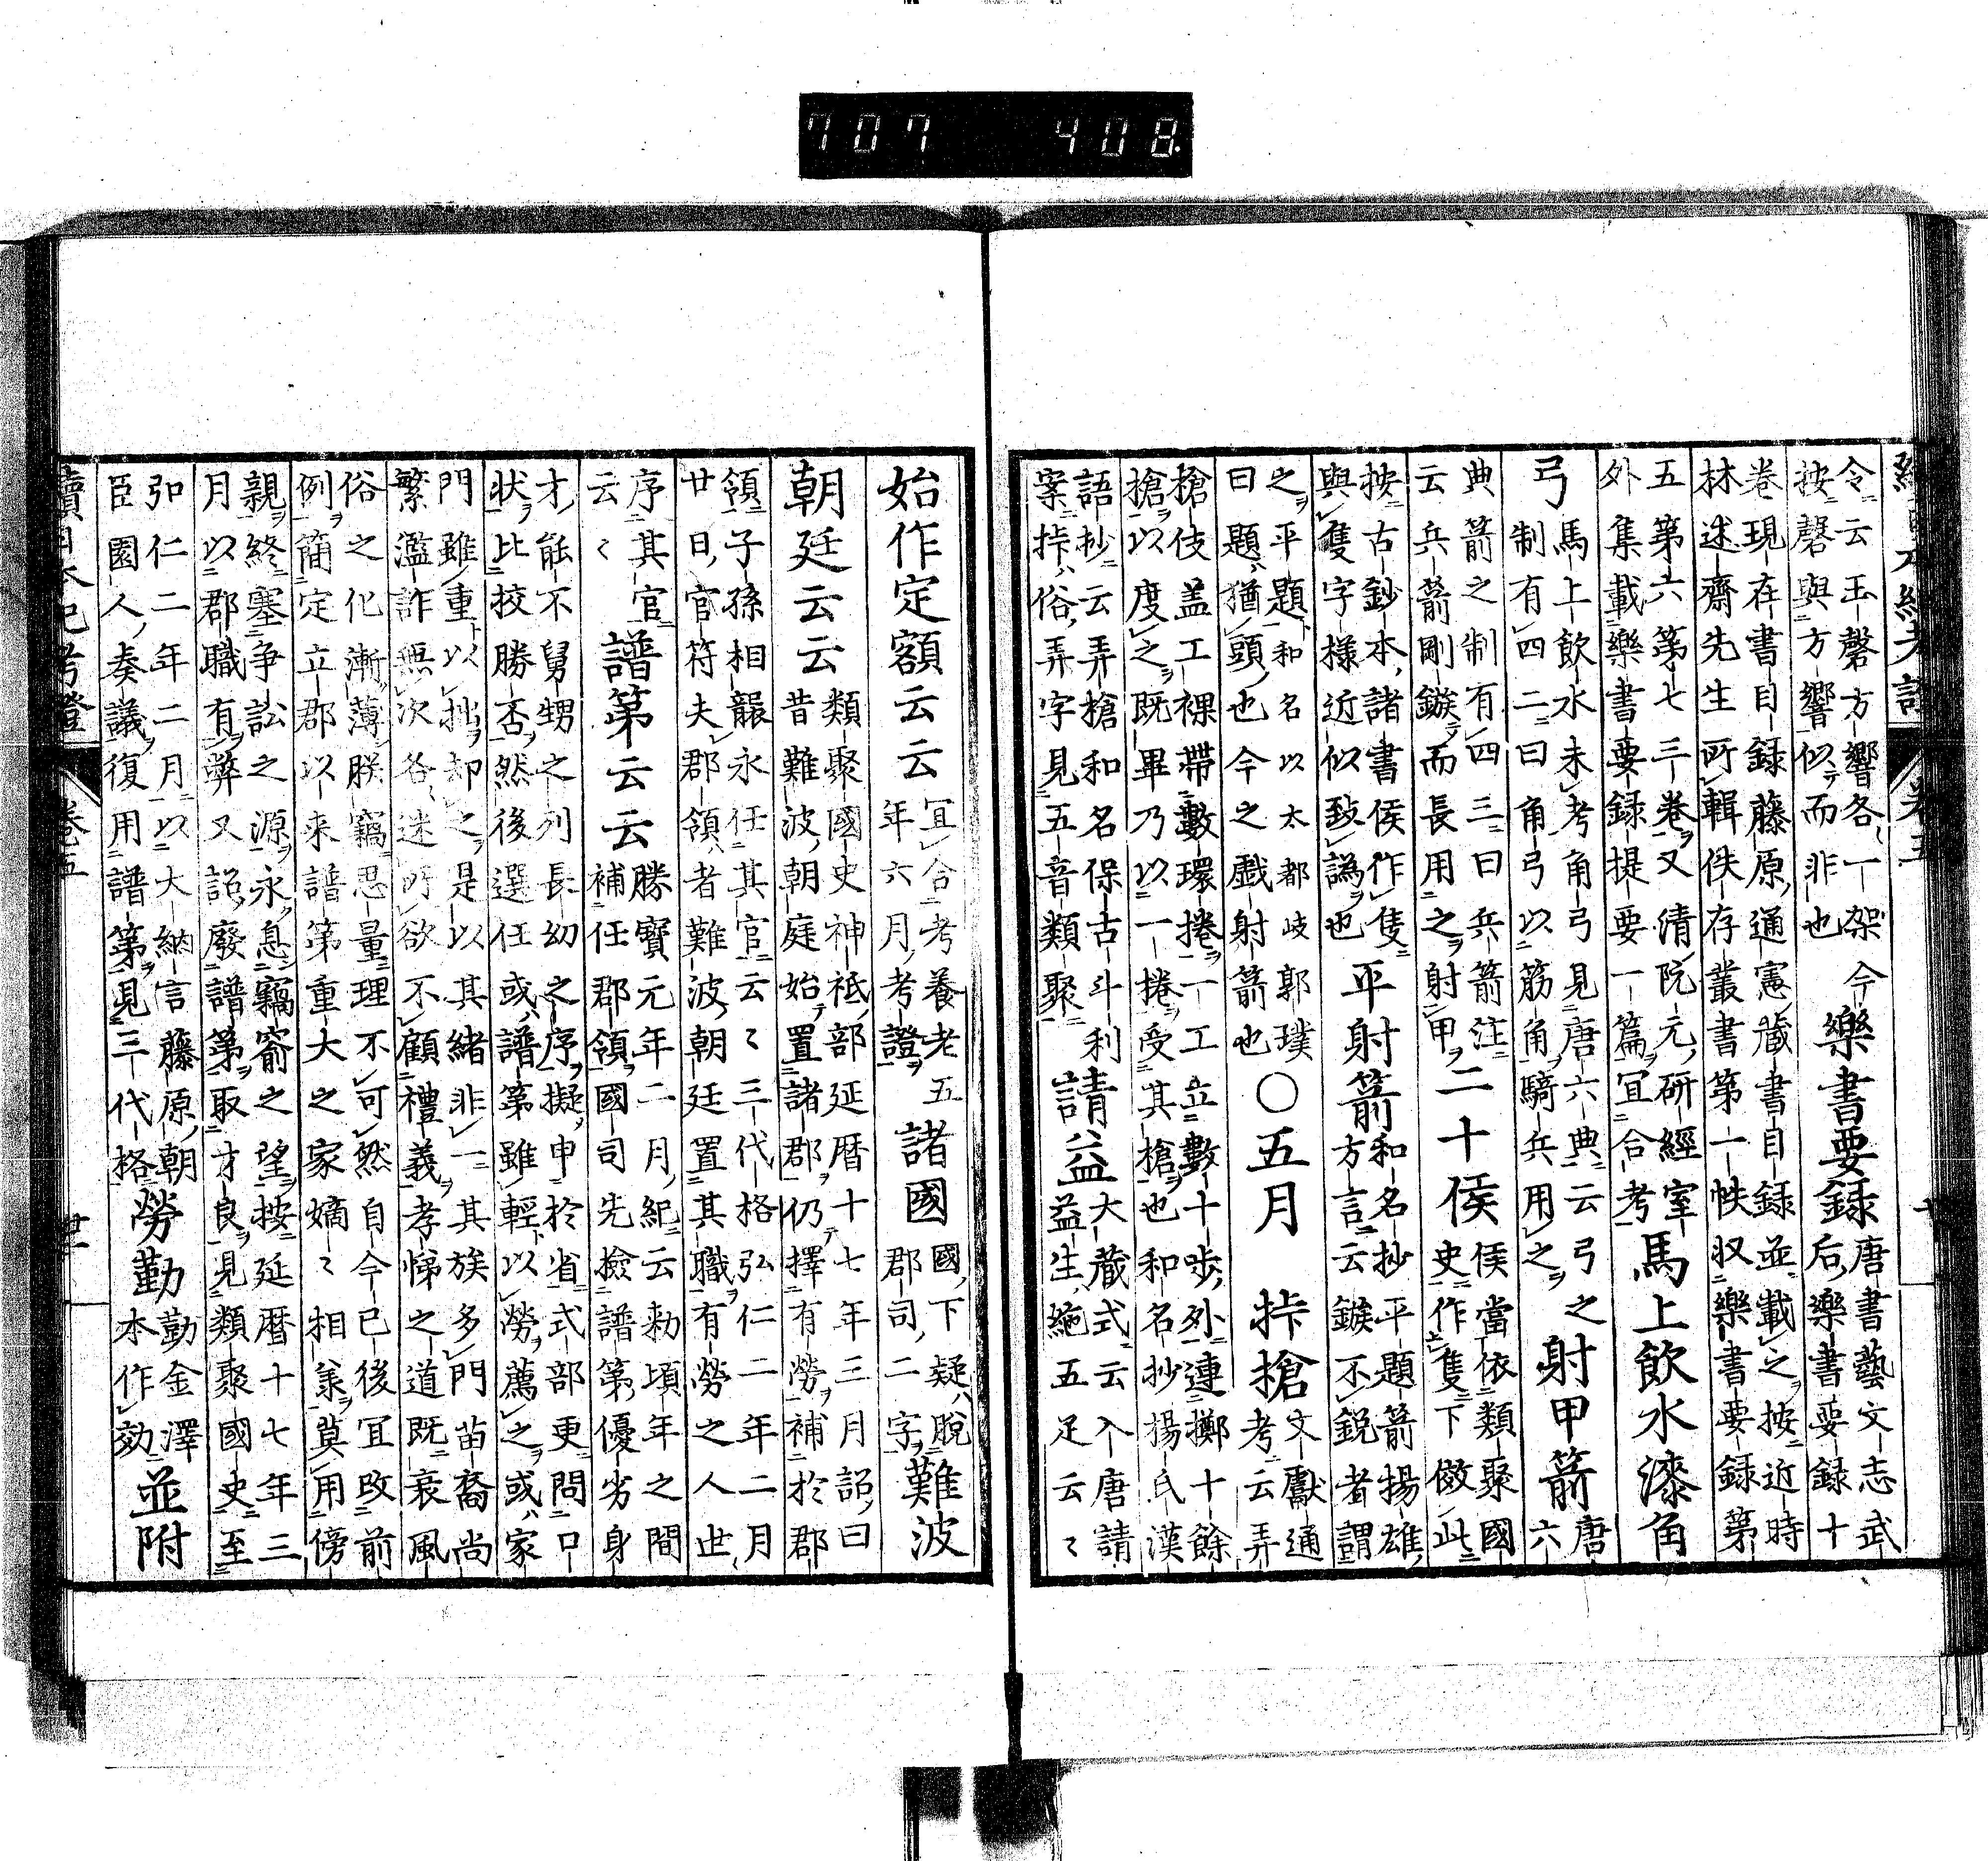 續日本紀考證 卷五 十
令云玉磬方響各一架今
按磬與方響似而非也
樂書要録
唐書藝文志武
后樂書要録十
卷現在書目録藤原通憲藏書目録並載之按近時
林述齋先生所輯佚存叢書第一帙収樂書要録第
五第六第七三卷又清阮元研經室
外集載樂書要録提要一篇宜合考
馬上飲水漆角
弓
馬上飲水未考角弓見唐六典云弓之
制有四二曰角弓以筋角騎兵用之
射甲箭
唐
六
典箭之制有四三曰兵箭注
云兵箭剛鏃而長用之射甲
二十侯
侯當依類聚國
史作隻下倣此
按古鈔本諸書侯作隻
與隻字様近似致譌也
平射箭
和名抄平題箭揚雄
方言云鏃不鋭者謂
之平題和名以太都岐郭璞
曰題猶頭也今之戯射箭也
○五月 挊槍
文獻通
考云弄
槍伎盖工裸帶數環捲一工立數十歩外連擲十餘
槍以度之既畢乃以一捲受其槍也和名抄揚氏漢
語抄云弄槍和名保古斗利
案挊俗弄字見五音類聚
請益
大藏式云入唐請
益生絁五疋云々
始作定額云云
宜合考養老五
年六月考證
諸國
國下疑脫
郡司二字
難波
朝廷云云
類聚國史神祇部延暦十七年三月詔曰
昔難波朝庭始置諸郡仍擇有勞補於郡
領子孫相襲永任其官云々三代格弘仁二年二月
廿日官符夫郡領者難波朝廷置其職有勞之人世
序其官
云々
譜第云云
勝寶元年二月紀云勅頃年之間
補任郡領國司先撿譜第優劣身
才能不舅甥之列長幼之序擬申於省式部更問口
状比挍勝否然後選任或譜第雖輕以勞薦之或家
門雖重以拙却之是以其緒非一其族多門苗裔尚
繁濫訴無次各迷所欲不顧禮義孝悌之道既衰風
俗之化漸薄朕竊思量理不可然自今已後宜改前
例簡定立郡以来譜第重大之家嫡々相継莫用傍
親終塞争訟之源永息竊窬之望按延暦十七年三
月以郡職有弊又詔廢譜第取才良見類聚國史至
弘仁二年二月以大納言藤原朝
臣園人奏議復用譜第見三代格
勞勤
勤金澤
本作効
並附
續日本紀考證 卷五 廿一